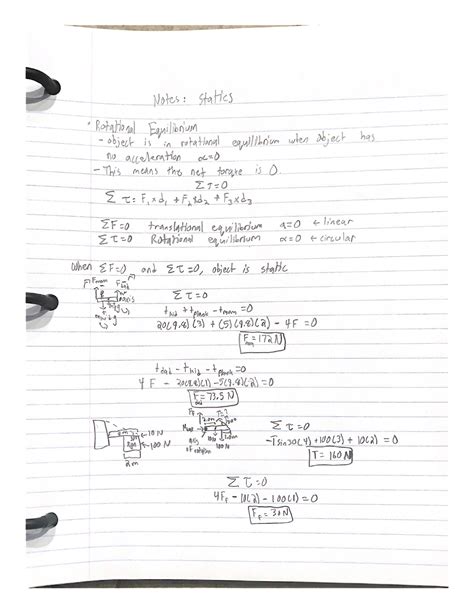 Notes: Statics
• Rotational Equilibrium
- object is in rotational equilibrium when object has
no acceleration α=0
- This means the net torque is 0.
Στ=0
Στ: F₁×d₁ + F₂×d₂ + F₃×d₃
ΣF=0 translational equilibrium a=0 ← linear
Στ=0 Rotational equilibrium α=0 ← circular
When ΣF=0 and Στ=0, object is static
Στ=0
20(9.8)(3) + (5)(9.8)(2) - 4F = 0
F = 172N
4F - 20(9.8)(1) - 5(9.8)(2) = 0
F = 73.5 N
←10N
←100N
2m
Στ=0
-Tsin30(4) + 100(3) + 10(2) = 0
T = 160N
Στ=0
4F - 10(2) - 100(1) = 0
F = 30N